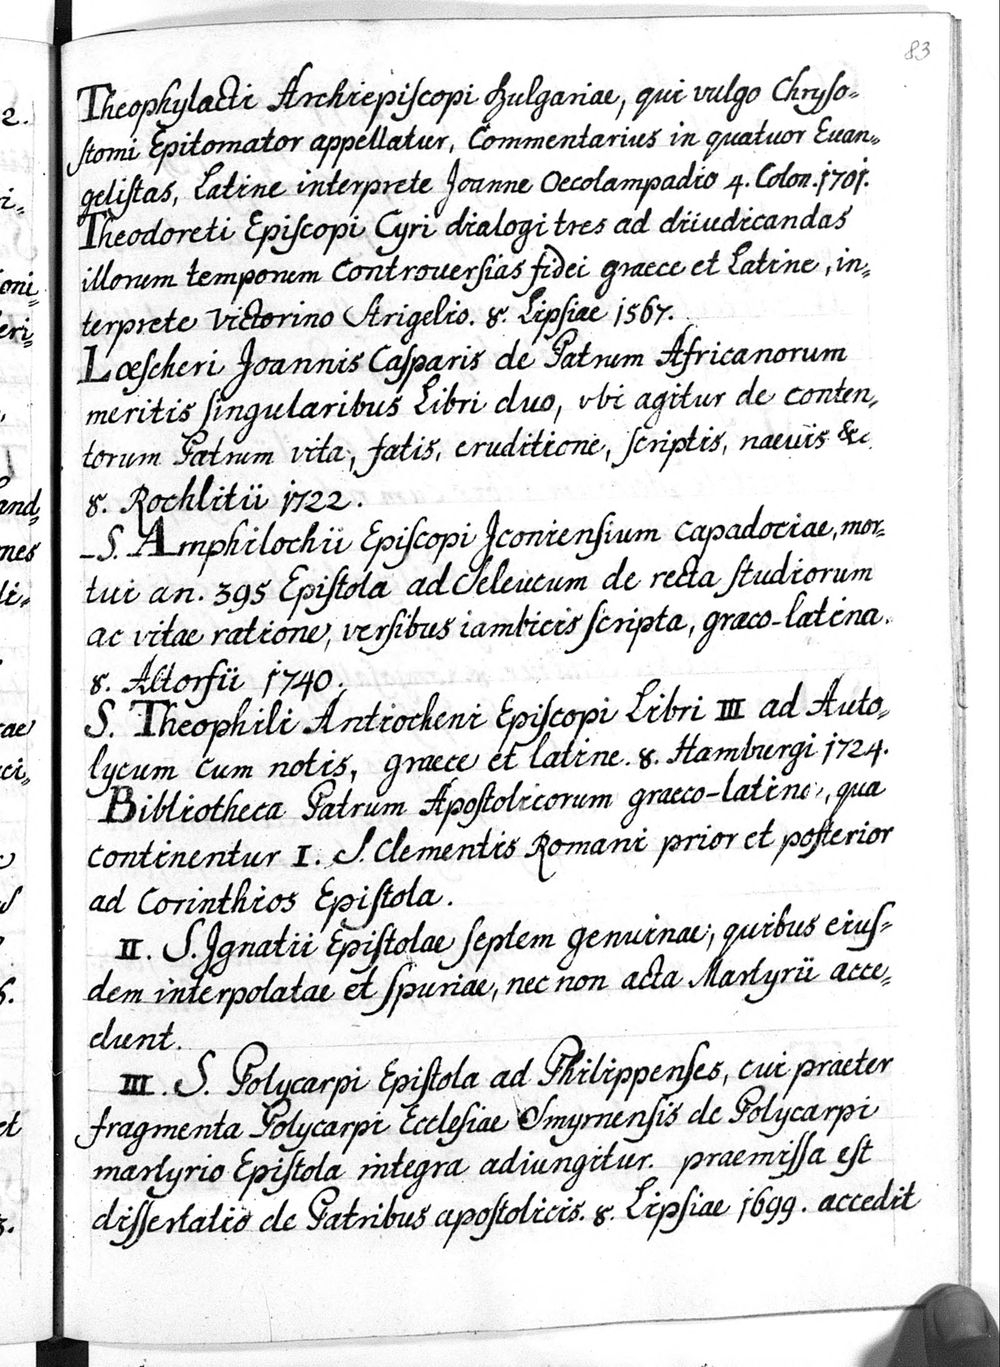 83
Theophylacti Archiepiſcopi Bulgariae, qui vulgo Chryſo=
ſtomi Epitomator appellatur, Commentarius in quatuor Euan=
geliſtas, Latine interprete Joanne Oecolampadio 4. Colon. 1701.
Theodoreti Epiſcopi Cyri dialogi tres ad diiudicandas
illorum temporum Controuerſias fidei graece et Latine, in=
terprete Victorino Strigelio. 8. Lipſiae 1567.
Loeſcheri Joannis Caſparis de Patrum Africanorum
meritis ſingularibus Libri duo, vbi agitur de conten=
torum Patrum vita, fatis, eruditione, ſcriptis, naeuis &c
8. Rochlitii 1722.
S. Amphilochii Epiſcopi Jconienſium Capadociae, mor=
tui an. 395 Epiſtola ad Seleucum de recta ſtudiorum
ac vitae ratione, verſibus iambicis ſcripta, graeco-latina.
8. Altorfii 1740.
S. Theophili Antiocheni Epiſcopi Libri III ad Auto=
lycum cum notis, graece et latine. 8. Hamburgi 1724.
Bibliotheca Patrum Apoſtolicorum graeco-latina, qua
continentur I. S. Clementis Romani prior et poſterior
ad Corinthios Epiſtola.
II. S. Jgnatii Epiſtolae ſeptem genuinae, quibus eius=
dem interpolatae et ſpuriae, nec non acta Martyrii acce=
dunt.
III. S. Polycarpi Epiſtola ad Philippenſes, cui praeter
fragmenta Polycarpi Eccleſiae Smyrnenſis de Polycarpi
martyrio Epiſtola integra adiungitur. praemiſſa eſt
diſſertatio de Patribus apoſtolicis. 8. Lipſiae 1699. accedit